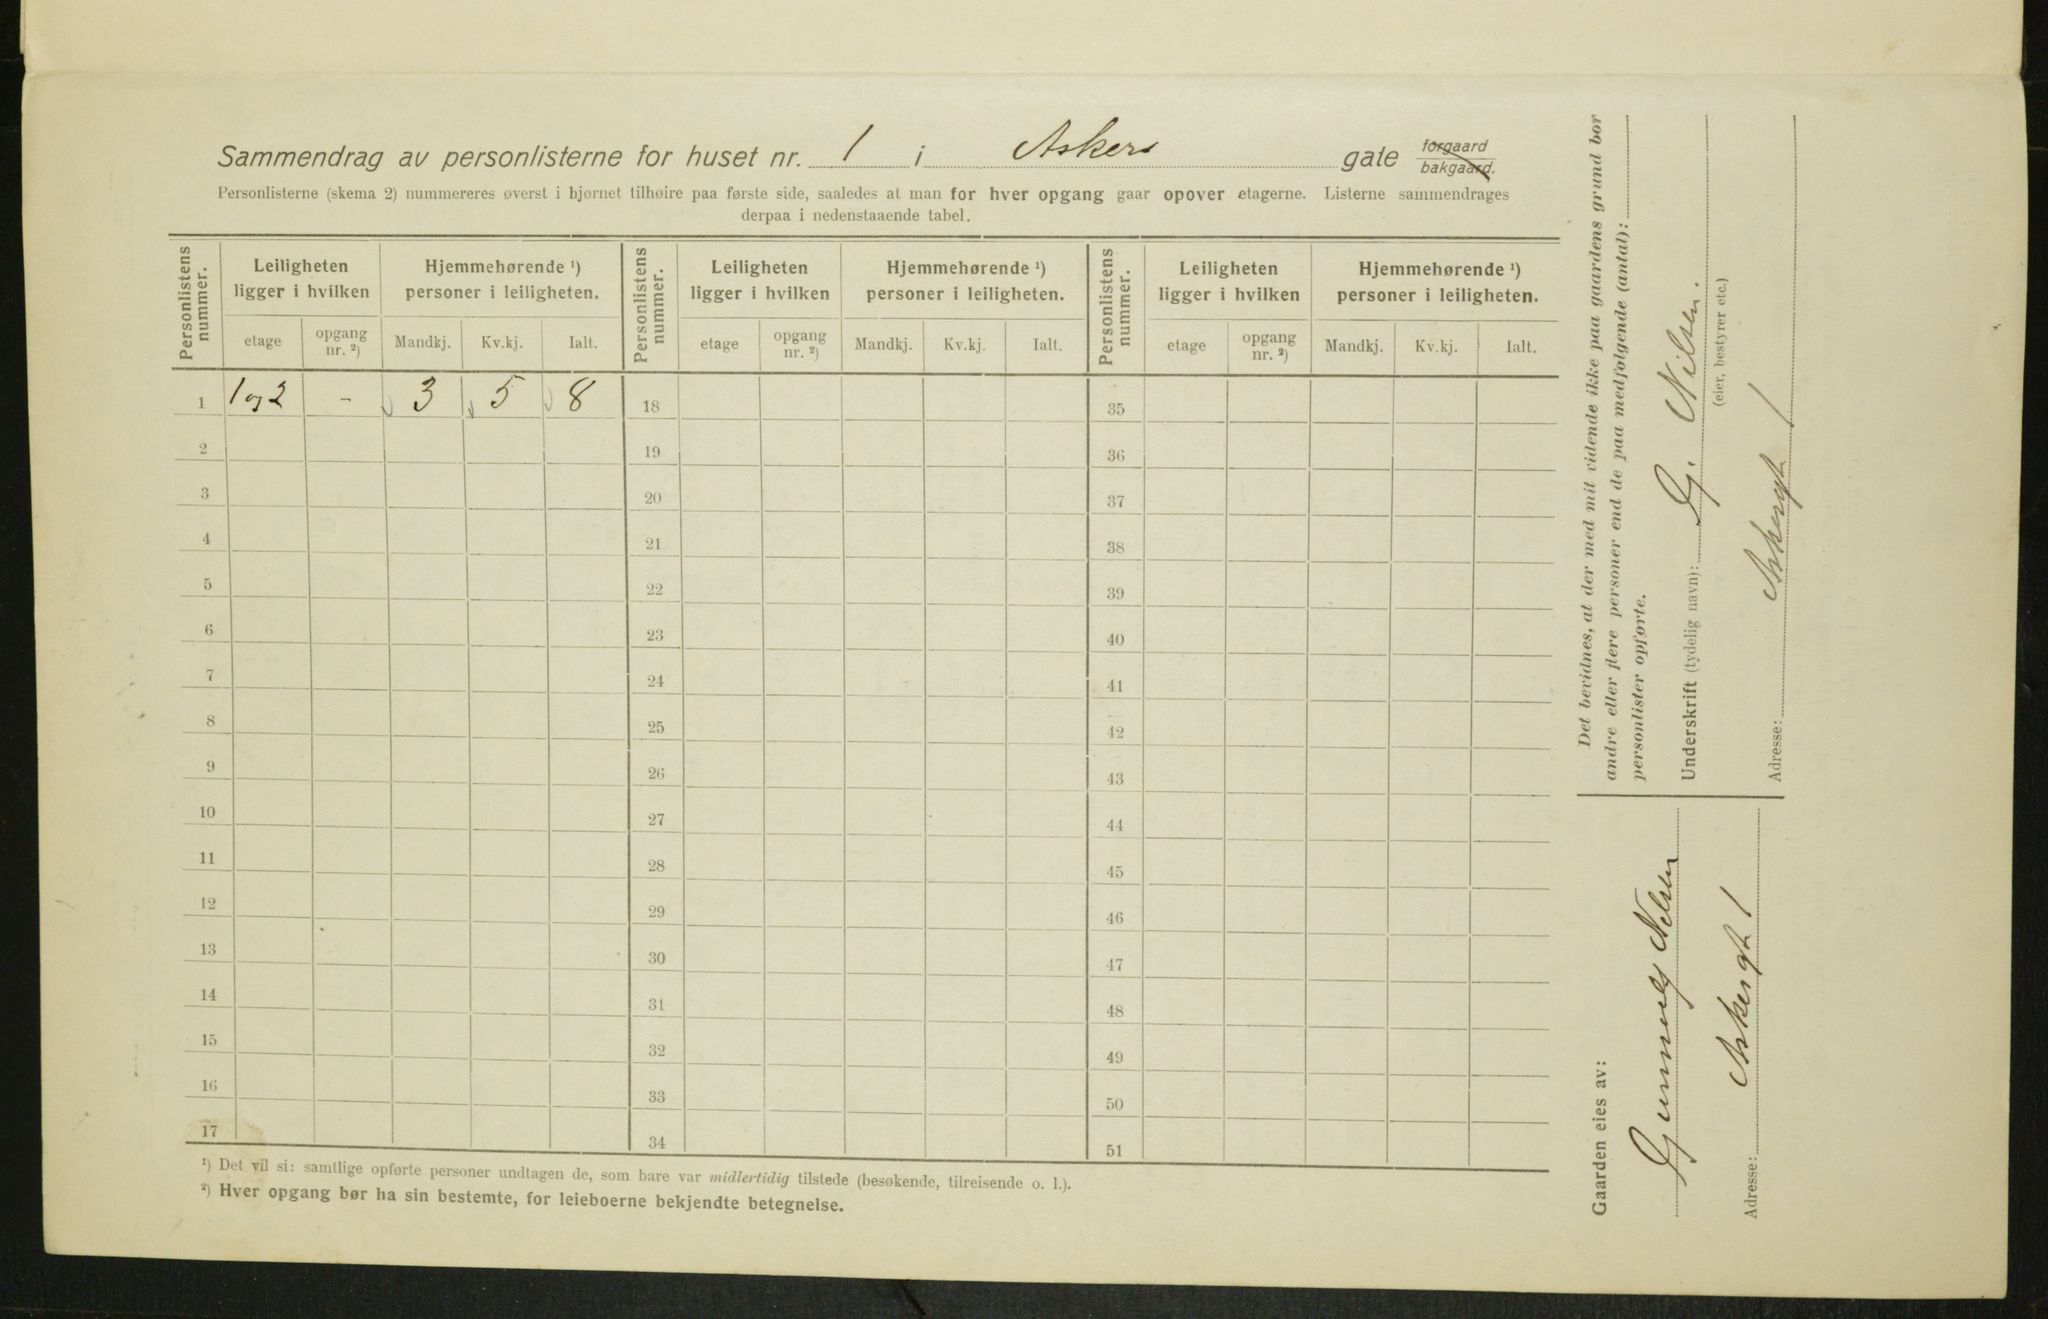 Sammendrag av personlisterne for huset nr. 1 i Askers gate forgaard bakgaard.
Personlisterne (skema 2) nummereres øverst i hjørnet tilhøire paa første side, saaledes at man for hver opgang gaar opover etagerne. Listerne sammendrages
derpaa i nedenstaaende tabel.
Personlistens nummer. Leiligheten ligger i hvilken Hjemmehørende ¹) personer i leiligheten. Personlistens nummer. Leiligheten ligger i hvilken Hjemmehørende ¹) personer i leiligheten. Personlistens nummer. Leiligheten ligger i hvilken Hjemmehørende ¹) personer i leiligheten.
etage opgang nr. ²) Mandkj. Kv.kj. Ialt. etage opgang nr. ²) Mandkj. Kv.kj. Ialt. etage opgang nr. ²) Mandkj. Kv.kj. Ialt.
1 1 og 2 - 3 5 8 18 35
2 19 36
3 20 37
4 21 38
5 22 39
6 23 40
7 24 41
8 25 42
9 26 43
10 27 44
11 28 45
12 29 46
13 30 47
14 31 48
15 32 49
16 33 50
17 34 51
¹) Det vil si: samtlige opførte personer undtagen de, som bare var midlertidig tilstede (besøkende, tilreisende o. l.).
²) Hver opgang bør ha sin bestemte, for leieboerne bekjendte betegnelse.
Det bevidnes, at der med mit vidende ikke paa gaardens grund bor
andre eller flere personer end de paa medfølgende (antal):
personlister opførte.
Underskrift (tydelig navn): G. Nilsen.
(eier, bestyrer etc.)
Adresse: Askersgt 1
Gaarden eies av:
Nilsen
Adresse: Askersgt 1